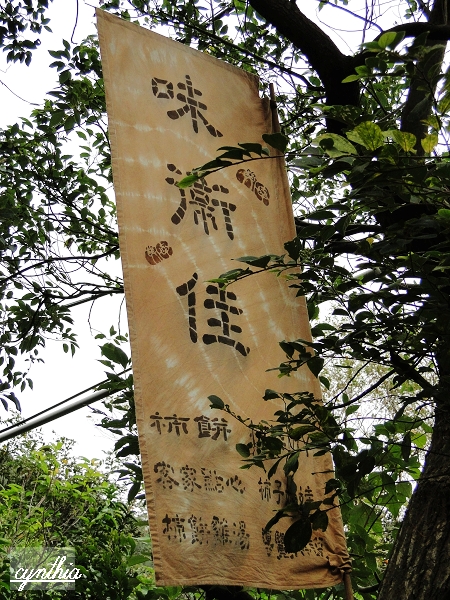 味衛佳
柿餅
客家點心 柿子
柿餅雞湯
cynthia